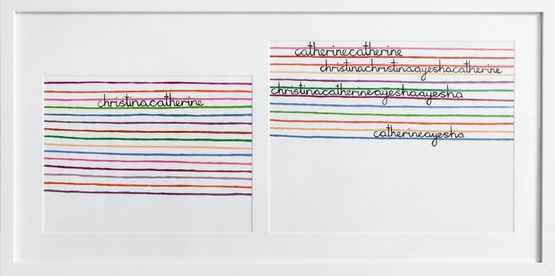 christinacatherine
catherinecatherine
christinachristinaayeshacatherine
christinacatherineayeshaayesha
catherineayesha